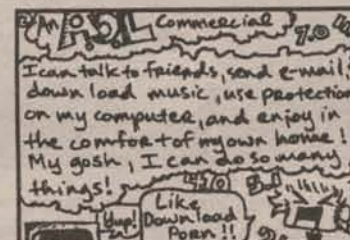 An A5L Commercial 9.0
I can talk to friends, send e-mail,
down load music, use protection
on my computer, and enjoy in
the comfort of my own home!
My gosh, I can do so many
things!
Like,
Yup! Download
Porn!!